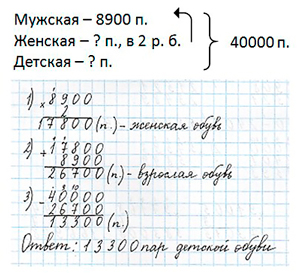 Мужская – 8900 п.
Женская – ? п., в 2 р. б.
Детская – ? п.
40000 п.
1) × 8900
2
17800 (п.) – женская обувь
2) + 17800
8900
26700 (п.) – взрослая обувь
3) – 40000
26700
13300 (п.)
Ответ: 13300 пар детской обуви